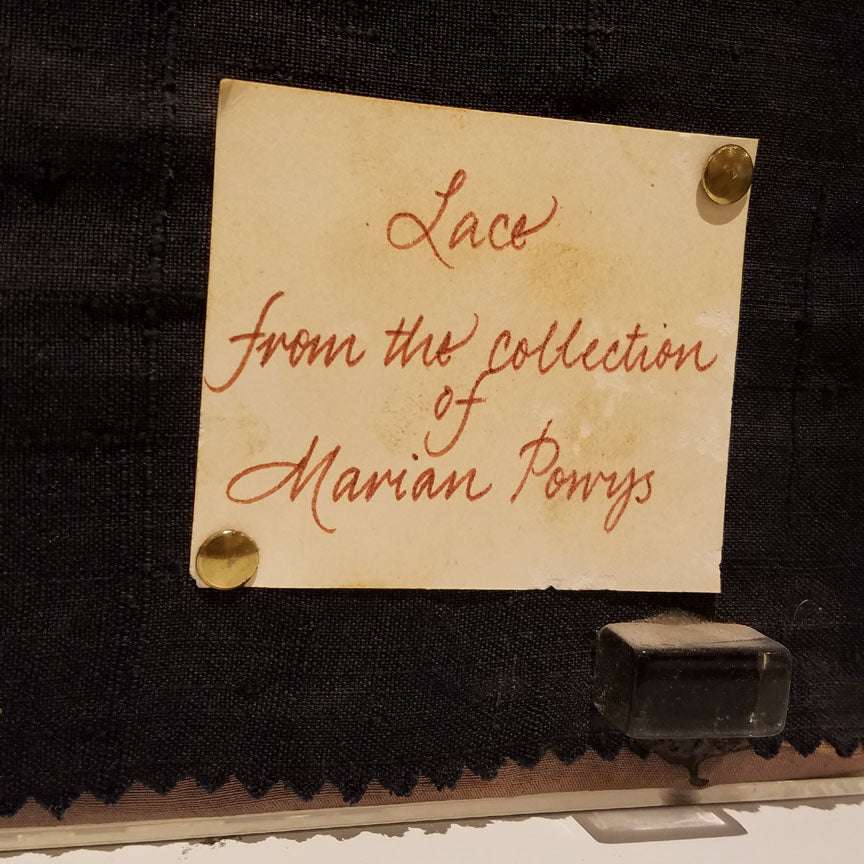 Lace
from the collection
of
Marian Powys